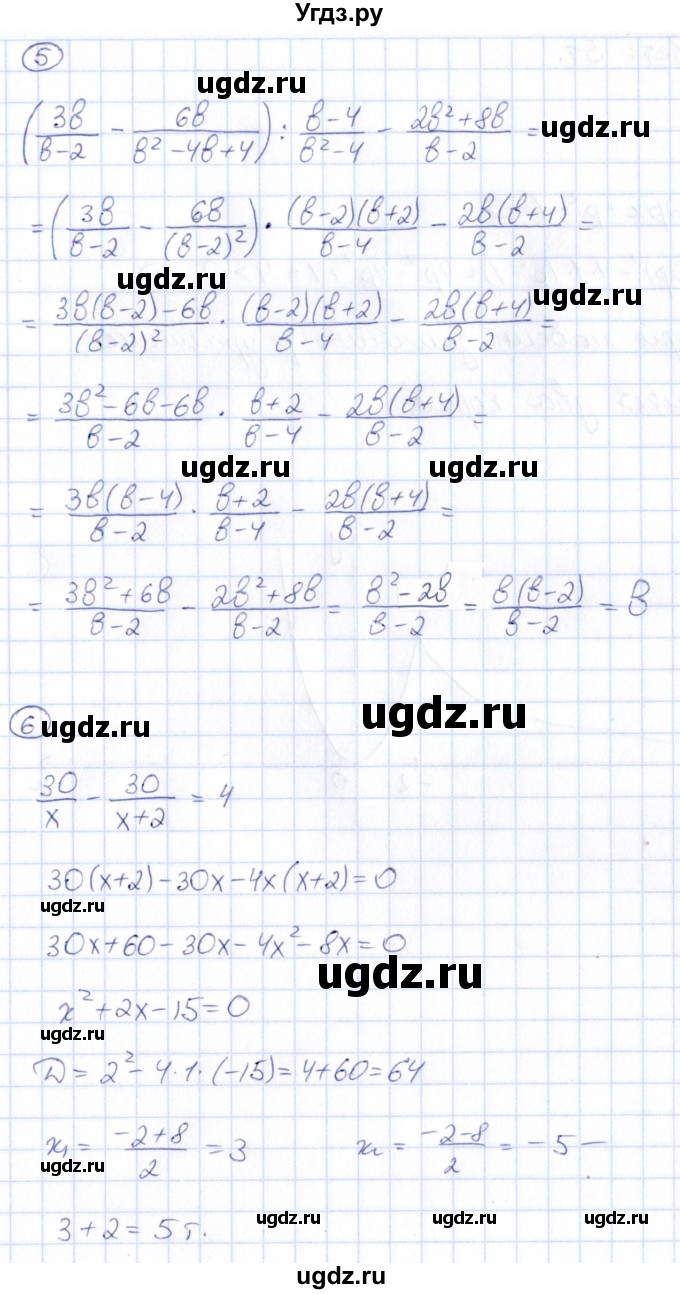 Угдз.ру
5
ugdz.ru
(3в/(в-2) - 6в/(в²-4в+4)) : (в-4)/(в²-4) - (2в²+8в)/(в-2) =
ugdz.ru
= (3в/(в-2) - 6в/(в-2)²) · (в-2)(в+2)/(в-4) - 2в(в+4)/(в-2) =
ugdz.ru
ugdz.ru
= (3в(в-2)-6в)/(в-2)² · (в-2)(в+2)/(в-4) - 2в(в+4)/(в-2) =
= (3в²-6в-6в)/(в-2) · (в+2)/(в-4) - 2в(в+4)/(в-2) =
ugdz.ru
ugdz.ru
= 3в(в-4)/(в-2) · (в+2)/(в-4) - 2в(в+4)/(в-2) =
= (3в²+6в)/(в-2) - (2в²+8в)/(в-2) = (в²-2в)/(в-2) = в(в-2)/(в-2) = в
6
ugdz.ru
ugdz.ru
30/x - 30/(x+2) = 4
30(x+2)-30x-4x(x+2)=0
ugdz.ru
30x+60-30x-4x²-8x=0
ugdz.ru
x²+2x-15=0
ugdz.ru
D=2²-4·1·(-15)=4+60=64
x₁ = (-2+8)/2 = 3   x₂ = (-2-8)/2 = -5 –
ugdz.ru
3+2=5 т.
ugdz.ru
ugdz.ru
ugdz.ru
ugdz.ru